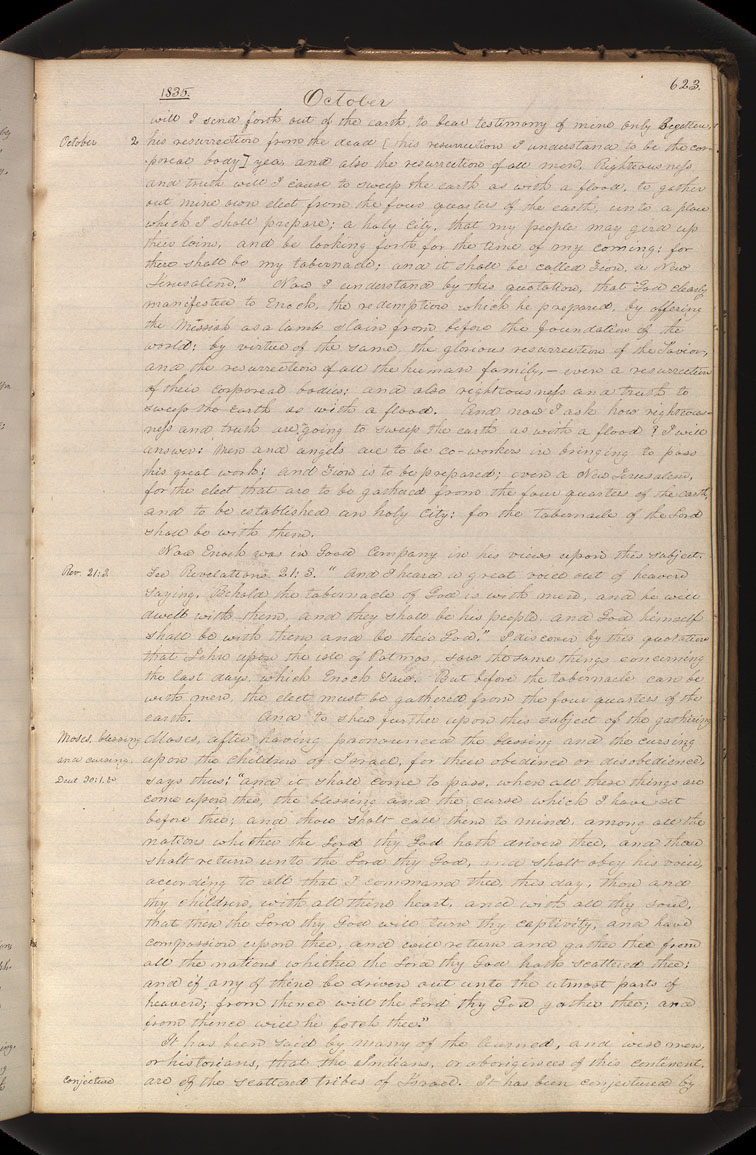 1835.
October
623.
will I send forth out of the earth, to bear testimony of mine only Begotten,
October 2 his resurrection from the dead [his resurrection I understand to be the cor-
poreal body] yea, and also the resurrection of all men. Righteousness
and truth will I cause to sweep the earth as with a flood, to gather
out mine own elect from the four quarters of the earth, unto a place
which I shall prepare; a holy City, that my people may gird up
their loins, and be looking forth for the time of my coming: for
there shall be my tabernacle; and it shall be called Zion, a New
Jerusalem." Now I understand by this quotation, that God clearly
manifested to Enoch, the redemption which he prepared, by offering
the Messiah as a lamb slain from before the foundation of the
world: by virtue of the same, the glorious resurrection of the Savior,
and the resurrection of all the human family, — even a resurrection
of their corporeal bodies: and also righteousness and truth to
sweep the earth as with a flood. And now I ask how righteous-
ness and truth are going to sweep the earth as with a flood? I will
answer: Men and angels are to be co-workers in bringing to pass
this great work: and Zion is to be prepared; even a New Jerusalem,
for the elect that are to be gathered from the four quarters of the earth,
and to be established an holy City: for the tabernacle of the Lord
shall be with them.
Now Enoch was in Good Company in his views upon this subject.
Rev. 21:3 See Revelations 21:3. "And I heard a great voice out of heaven
saying, Behold the tabernacle of God is with men, and he will
dwell with them, and they shall be his people, and God himself
shall be with them and be their God." I discover by this quotation
that John upon the isle of Patmos, saw the same things concerning
the last days, which Enoch saw. But before the tabernacle can be
with men, the elect must be gathered from the four quarters of the
earth. And to shew further upon this subject of the gathering
Moses, blessing Moses, after having pronounced the blessing and the cursing
and cursing. upon the children of Israel, for their obedience or disobedience,
Deut 30:1. says thus: "and it shall come to pass, when all these things are
come upon thee, the blessing and the curse which I have set
before thee; and thou shalt call them to mind, among all the
nations whither the Lord thy God hath driven thee, and thou
shalt return unto the Lord thy God, and shalt obey his voice,
according to all that I command thee, this day, thou and
thy children, with all thine heart, and with all thy soul,
that then the Lord thy God will turn thy captivity, and have
compassion upon thee, and will return and gather thee from
all the nations whither the Lord thy God hath scattered thee;
and if any of thine be driven out unto the utmost parts of
heaven; from thence will the Lord thy God gather thee; and
from thence will he fetch thee."
It has been said by many of the learned, and wise men,
or historians, that the Indians, or aborigines of this continent,
conjecture are of the scattered tribes of Israel. It has been conjectured by